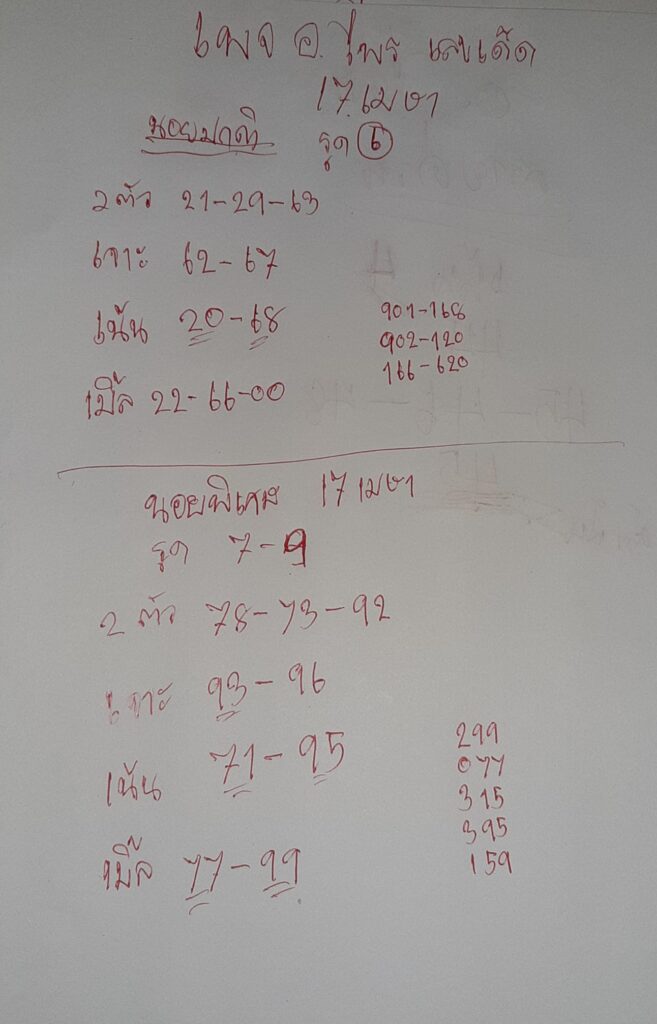 เพจ อ.ไพร เลขเด็ด
17 เมษา
นอยปกติ
รูด 6
2 ตัว 21-29-63
เจาะ 62-67
เน้น 20-68
901-168
902-120
166-620
เบิ้ล 22-66-00
นอยพิเศษ 17 เมษา
รูด 7-9
2 ตัว 78-73-92
เจาะ 93-96
เน้น 71-95
299
077
315
395
159
เบิ้ล 77-99